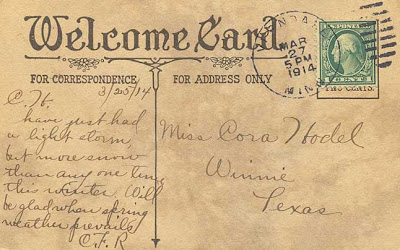 Welcome Card
MAR
27
5 PM
1914
MINN
U.S. POSTAGE
1 CENT 1
FOR CORRESPONDENCE
FOR ADDRESS ONLY
3/25/14
C. H.
have just had
a light storm,
but more snow
than any one time
this winter. Will
be glad when spring
weather prevails
C. F. R
Miss Cora Hodel
Winnie
Texas